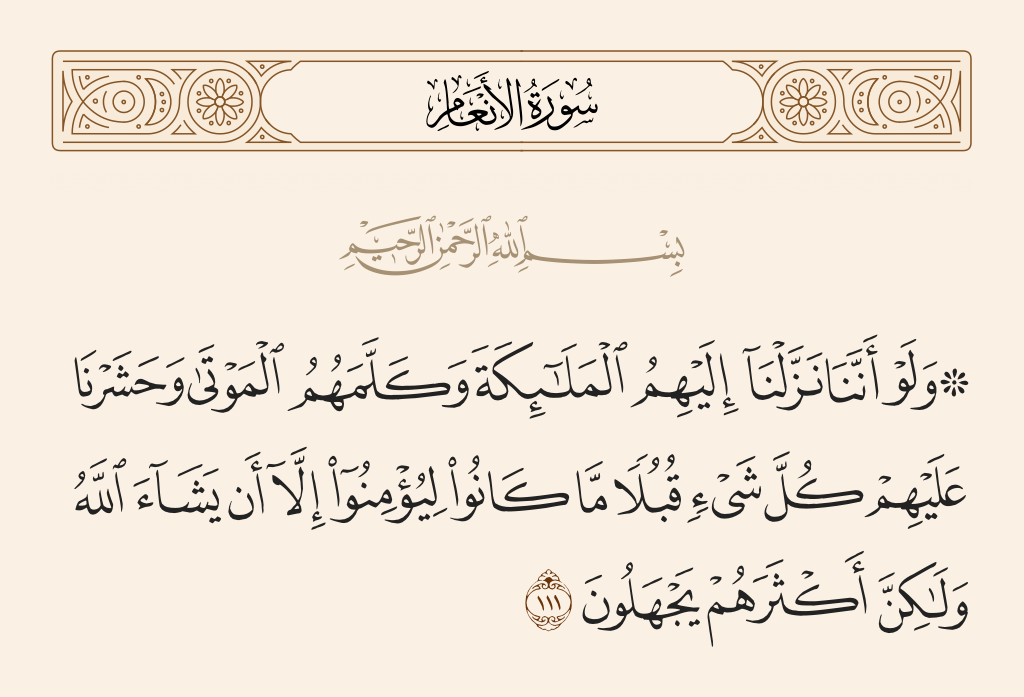 سُورَةُ الأَنْعَامِ
بِسْمِ ٱللَّهِ ٱلرَّحْمَٰنِ ٱلرَّحِيمِ
۞ وَلَوْ أَنَّنَا نَزَّلْنَآ إِلَيْهِمُ ٱلْمَلَٰٓئِكَةَ وَكَلَّمَهُمُ ٱلْمَوْتَىٰ وَحَشَرْنَا
عَلَيْهِمْ كُلَّ شَىْءٍ قُبُلًا مَّا كَانُوا۟ لِيُؤْمِنُوٓا۟ إِلَّآ أَن يَشَآءَ ٱللَّهُ
وَلَٰكِنَّ أَكْثَرَهُمْ يَجْهَلُونَ ١١١